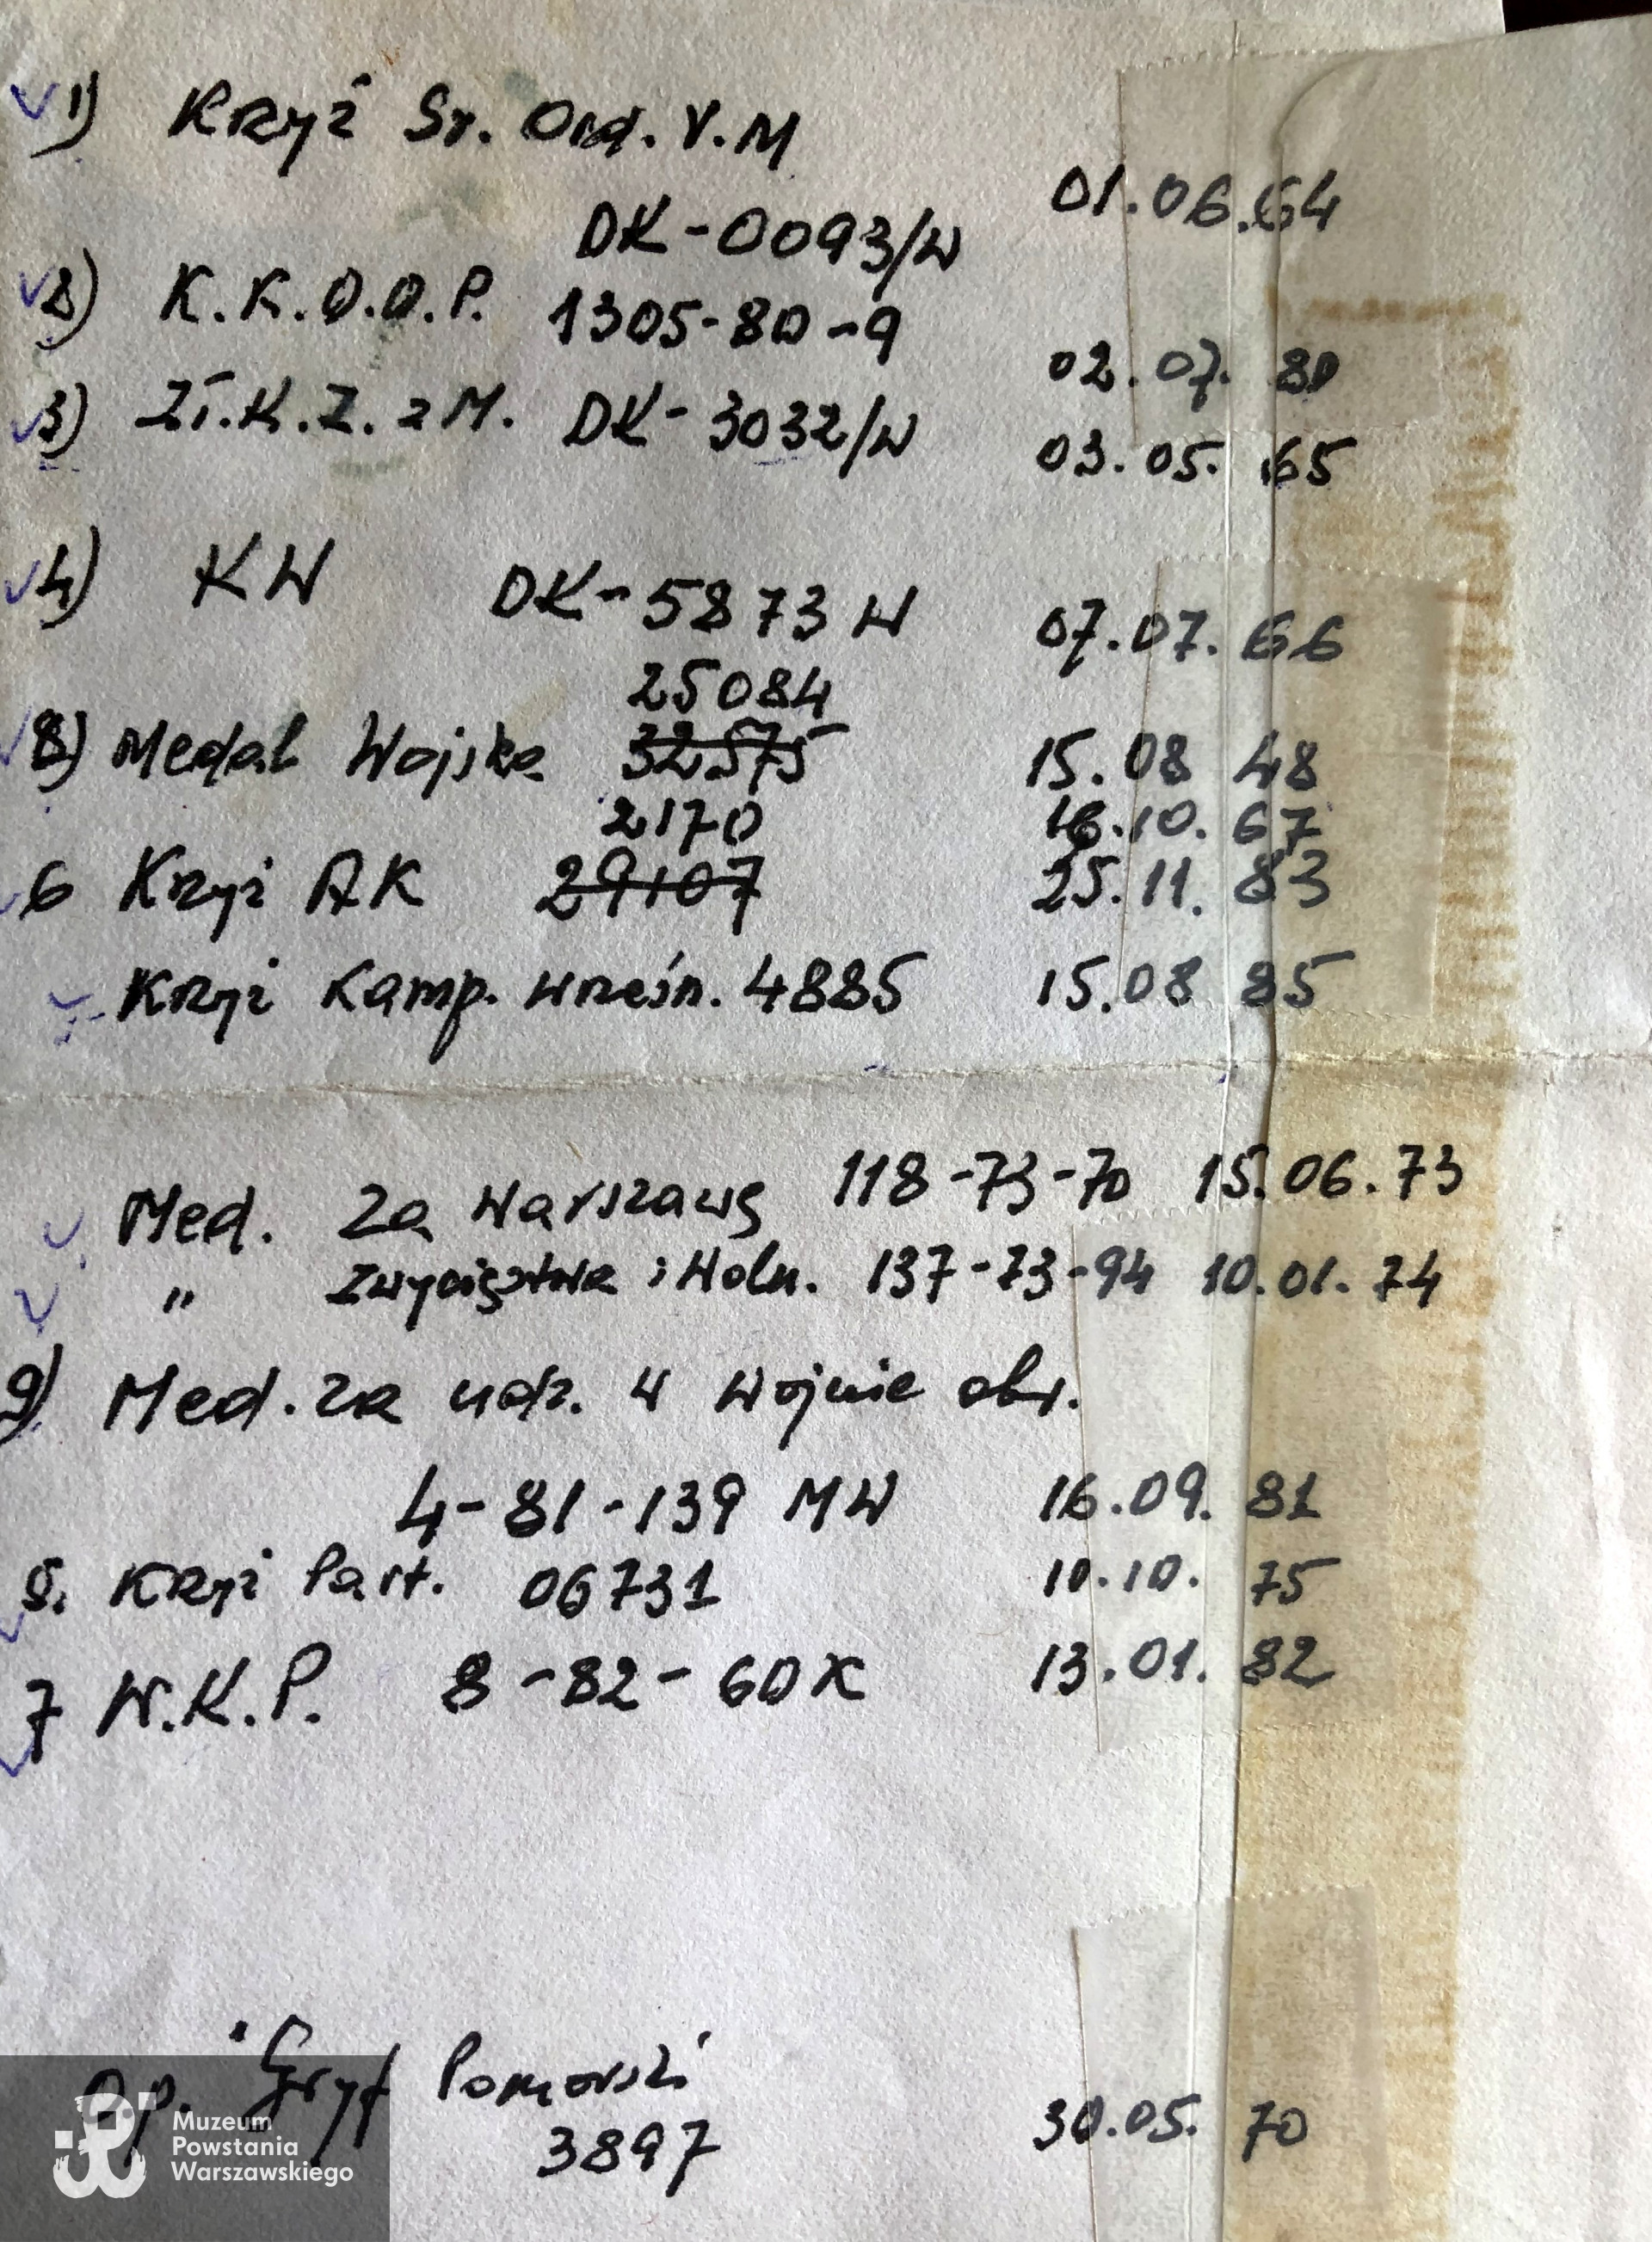 1) Krzyż Sr. Ord. V.M
DK-0093/W 01.06.64
2) K.K.O.O.P. 1305-80-9 02.07.80
3) Zł.K.Z. z M. DK-3032/W 03.05.65
4) KW DK-5873 W 07.07.66
25084
8) Medal Wojska 32575 15.08 48
2170 16.10.67
6 Krzyż AK 29107 25.11.83
Krzyż Kamp. Wrześn. 4885 15.08 85
Med. Za Warszawę 118-73-70 15.06.73
" Zwycięstwa i Woln. 137-73-94 10.01.74
9) Med. za udz. w Wojnie obr.
4-81-139 MW 16.09.81
5. Krzyż Part. 06731 10.10.75
7 W.K.P. 8-82-60K 13.01.82
Op. Gryf Pomorski
3897 30.05.70
Muzeum
Powstania
Warszawskiego